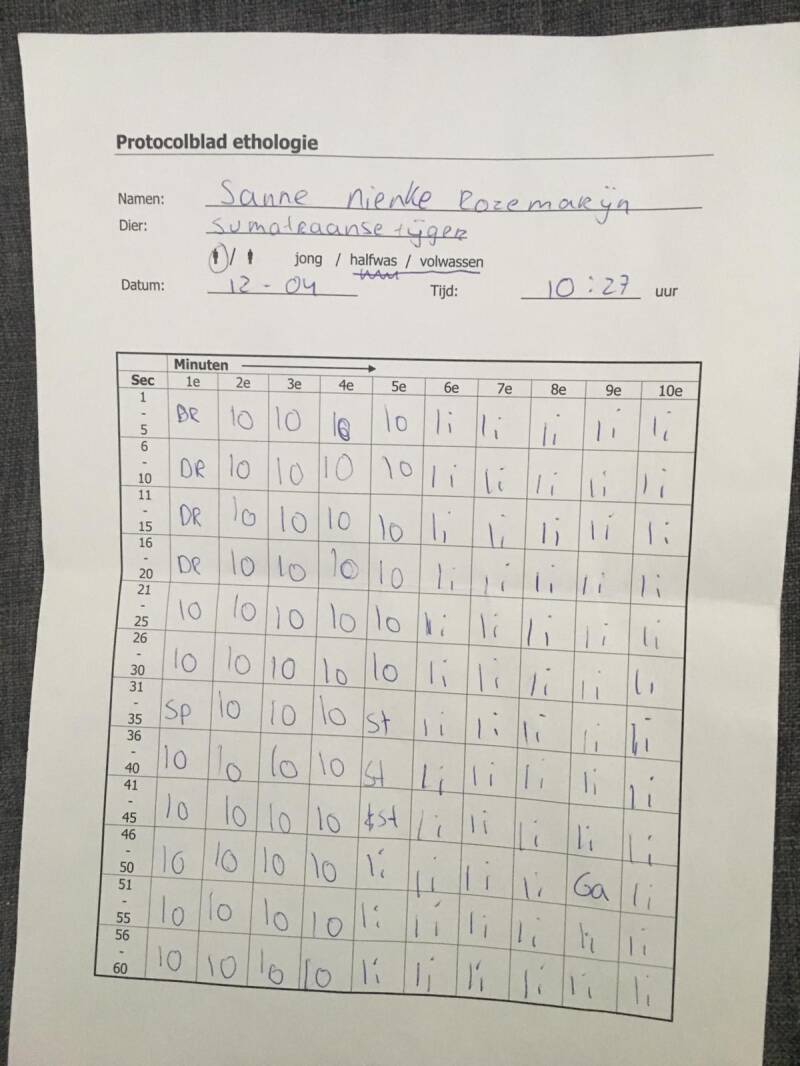 Protocolblad ethologie
Namen: Sanne nienke Rozemarijn
Dier: Sumatraanse tijger
/ jong / halfwas / volwassen
Datum: 12-04 Tijd: 10:27 uur
Minuten
Sec 1e 2e 3e 4e 5e 6e 7e 8e 9e 10e
1 - 5 DR lo lo lo lo li li li li li
6 - 10 DR lo lo lo lo li li li li li
11 - 15 DR lo lo lo lo li li li li li
16 - 20 DR lo lo lo lo li li li li li
21 - 25 lo lo lo lo lo li li li li li
26 - 30 lo lo lo lo lo li li li li li
31 - 35 Sp lo lo lo St li li li li li
36 - 40 lo lo lo lo St li li li li li
41 - 45 lo lo lo lo St li li li li li
46 - 50 lo lo lo lo li li li li Ga li
51 - 55 lo lo lo lo li li li li li li
56 - 60 lo lo lo lo li li li li li li